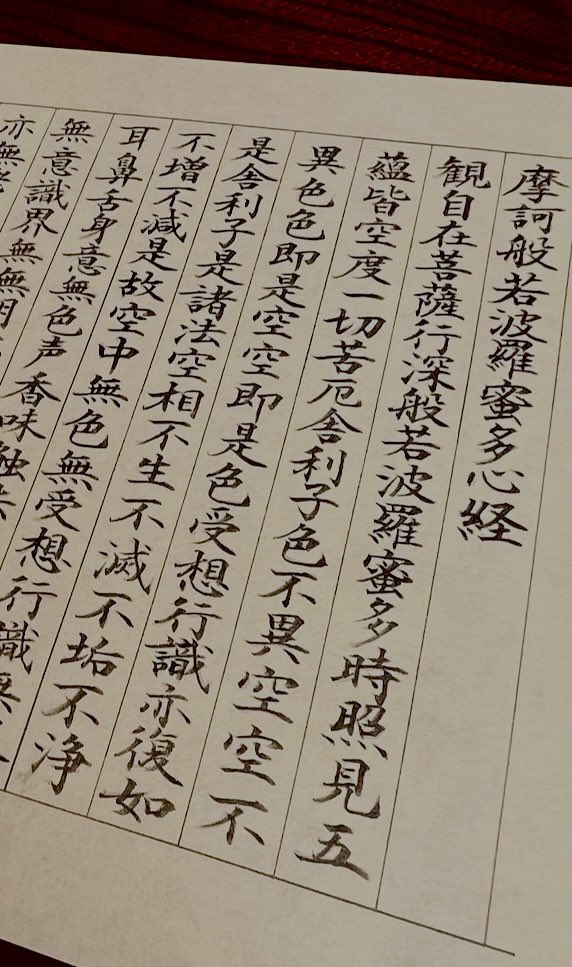 摩訶般若波羅蜜多心経
観自在菩薩行深般若波羅蜜多時照見五
蘊皆空度一切苦厄舎利子色不異空空不
異色色即是空空即是色受想行識亦復如
是舎利子是諸法空相不生不滅不垢不浄
不増不減是故空中無色無受想行識無
耳鼻舌身意無色声香味触
無意識界無無明
亦無